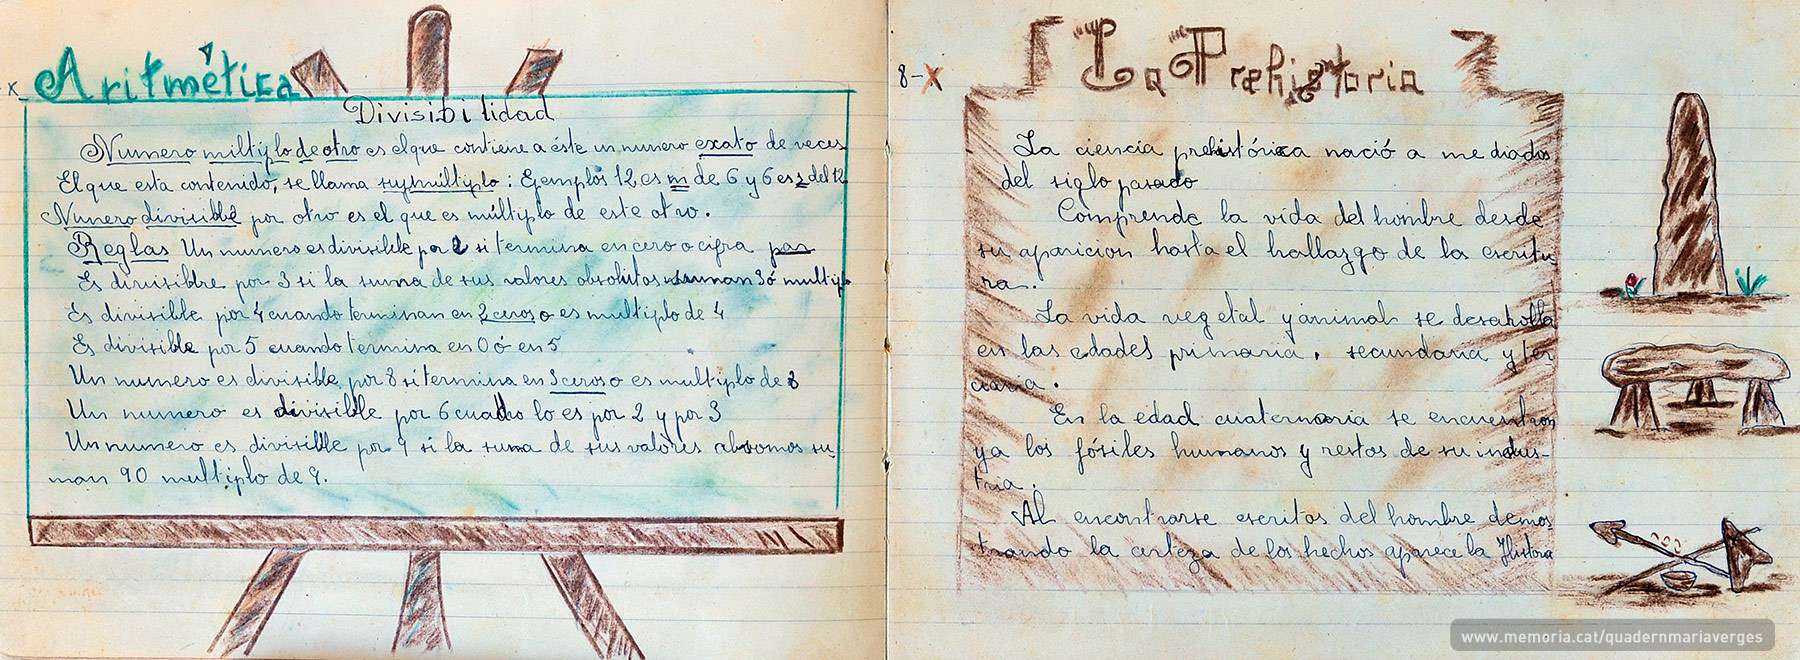 x Aritmética
Divisibilidad
Numero múltiplo de otro es el que contiene a éste un numero exato de veces
El que esta contenido, se llama submúltiplo: Ejemplos 12 es m de 6 y 6 es s del 12
Numero divisible por otro es el que es múltiplo de este otro.
Reglas Un numero es divisible por 2 si termina en cero o cifra par
Es divisible por 3 si la suma de sus valores absolutos suman 3 ó multip
Es divisible por 4 cuando terminan en 2 ceros o es multiplo de 4
Es divisible por 5 cuando termina en 0 ó en 5
Un numero es divisible por 8 si termina en 3 ceros o es multiplo de 8
Un numero es divisible por 6 cuando lo es por 2 y por 3
Un numero es divisible por 9 si la suma de sus valores su
man 90 multiplo de 9.
8-X La Prehistoria
La ciencia prehistórica nació a mediados
del siglo pasado
Comprende la vida del hombre desde
su aparicion hasta el hallazgo de la escritu
ra.
La vida vegetal y animal se desarrolla
en las edades primaria, secundaria y ter
ciaria.
En la edad cuaternaria se encuentran
ya los fósiles humanos y restos de su indus-
tria.
Al encontrarse escritos del hombre demos
trando la certeza de los hechos aparece la Historia
www.memoria.cat/quadernmariaverges